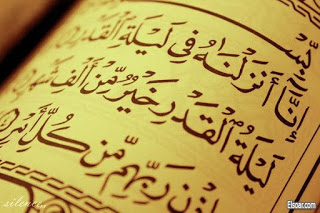 بِسْ
إِنَّآ أَنزَلْنَٰهُ فِى لَيْلَةِ ٱلْقَدْرِ
لَيْلَةُ ٱلْقَدْرِ خَيْرٌ مِّنْ أَلْفِ شَهْرٍ
إِذْنِ رَبِّهِم مِّن كُلِّ أَمْرٍ
silence,,
Elsoar.com